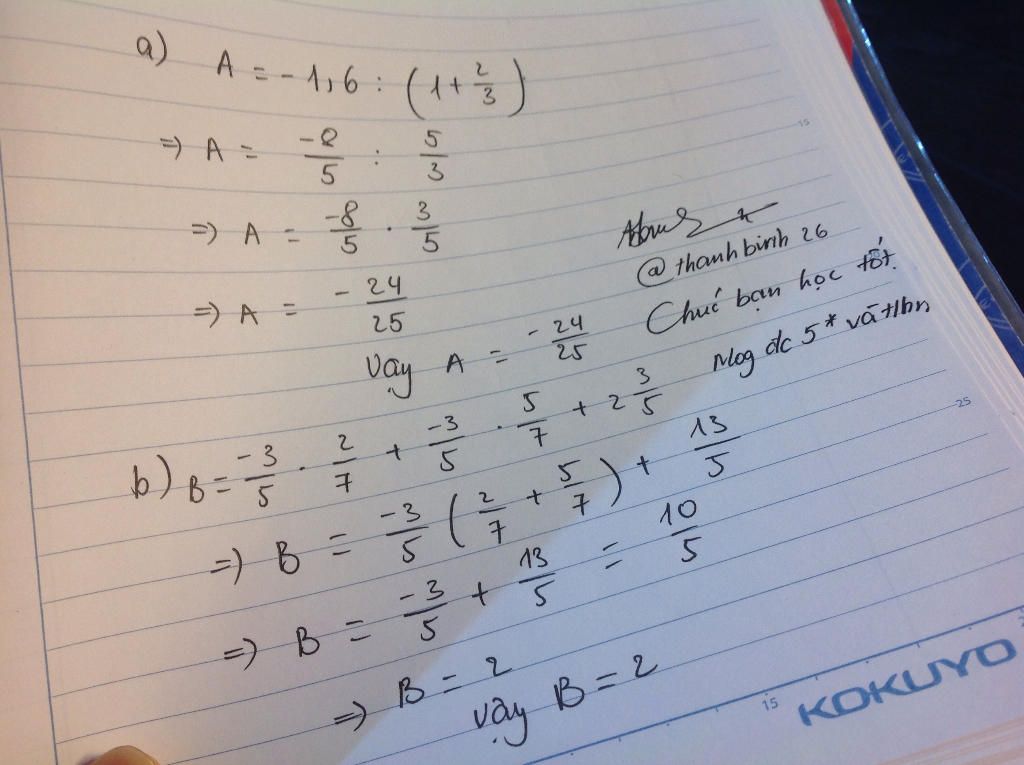 a) A = -1,6 : (1 + 2/3)
=> A = -8/5 : 5/3
=> A = -8/5 . 3/5
=> A = - 24/25
vậy A = - 24/25
@thanhbinh26
Chúc bạn học tốt.
Mog dc 5* và tlhn
b) B = -3/5 . 2/7 + -3/5 . 5/7 + 2 3/5
=> B = -3/5 (2/7 + 5/7) + 13/5
=> B = -3/5 + 13/5 = 10/5
=> B = 2
vậy B = 2
15
25
15
KOKUYO